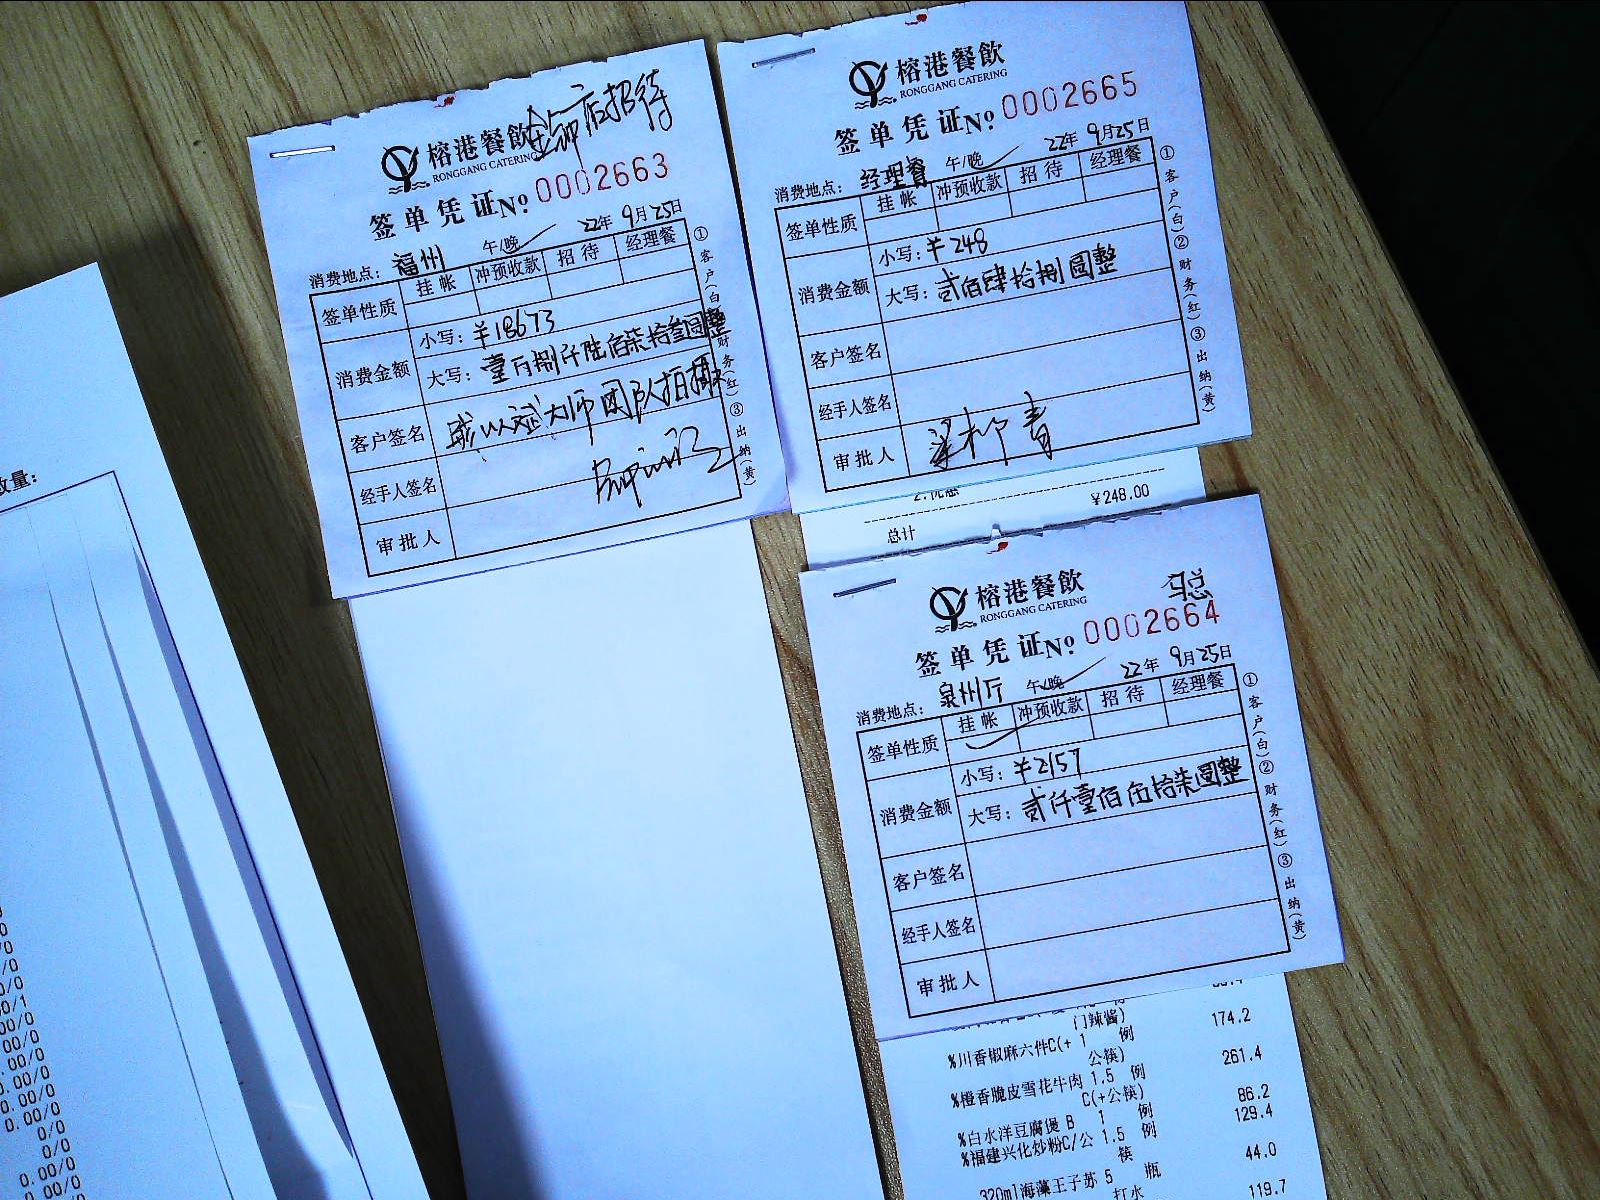 榕港餐飲
RONGGANG CATERING
店招待
签单凭证No 0002663
消费地点：福州 午/晚 22年9月25日
签单性质 挂帐 冲预收款 招待 经理餐
消费金额 小写：￥18673
大写：壹万捌仟陆佰柒拾叁圆整
客户签名 大师团队拍摄
经手人签名
审批人
①客户(白)②财务(红)③出纳(黄)
榕港餐飲
RONGGANG CATERING
签单凭证No 0002665
消费地点：经理餐 午/晚 22年9月25日
签单性质 挂帐 冲预收款 招待 经理餐
消费金额 小写：￥248
大写：贰佰肆拾捌圆整
客户签名
经手人签名
审批人 梁柳青
①客户(白)②财务(红)③出纳(黄)
￥248.00
总计
榕港餐飲
RONGGANG CATERING
马总
签单凭证No 0002664
消费地点：泉州厅 午/晚 22年9月25日
签单性质 挂帐 冲预收款 招待 经理餐
消费金额 小写：￥2157
大写：贰仟壹佰伍拾柒圆整
客户签名
经手人签名
审批人
①客户(白)②财务(红)③出纳(黄)
门辣酱)
%川香椒麻六件C(+ 1 例 174.2
公筷)
%橙香脆皮雪花牛肉 1.5 例 261.4
C(+公筷)
%白水洋豆腐煲 B 1 例 86.2
%福建兴化炒粉C/公 1.5 例 129.4
筷
320ml海藻王子苏 5 瓶 44.0
打水
119.7
数量：
0.00/0
0.00/0
0/0
0/0
0.00/0
0.00/0